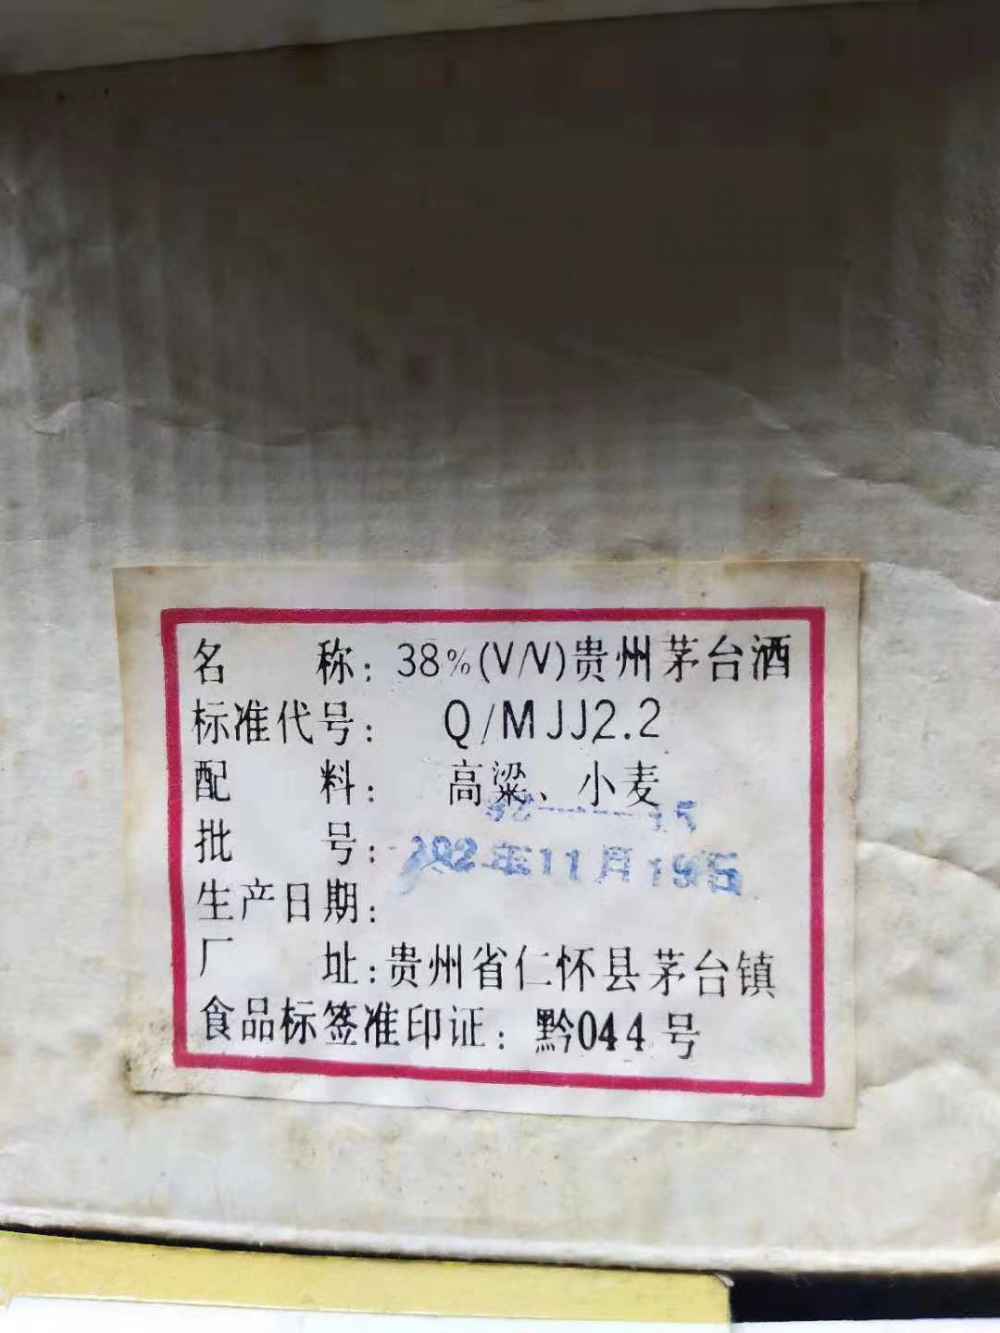 名 称：38%(V/V)贵州茅台酒
标准代号： Q/MJJ2.2
配 料： 高粱、小麦
批 号：
生产日期：
厂 址：贵州省仁怀县茅台镇
食品标签准印证：黔044号